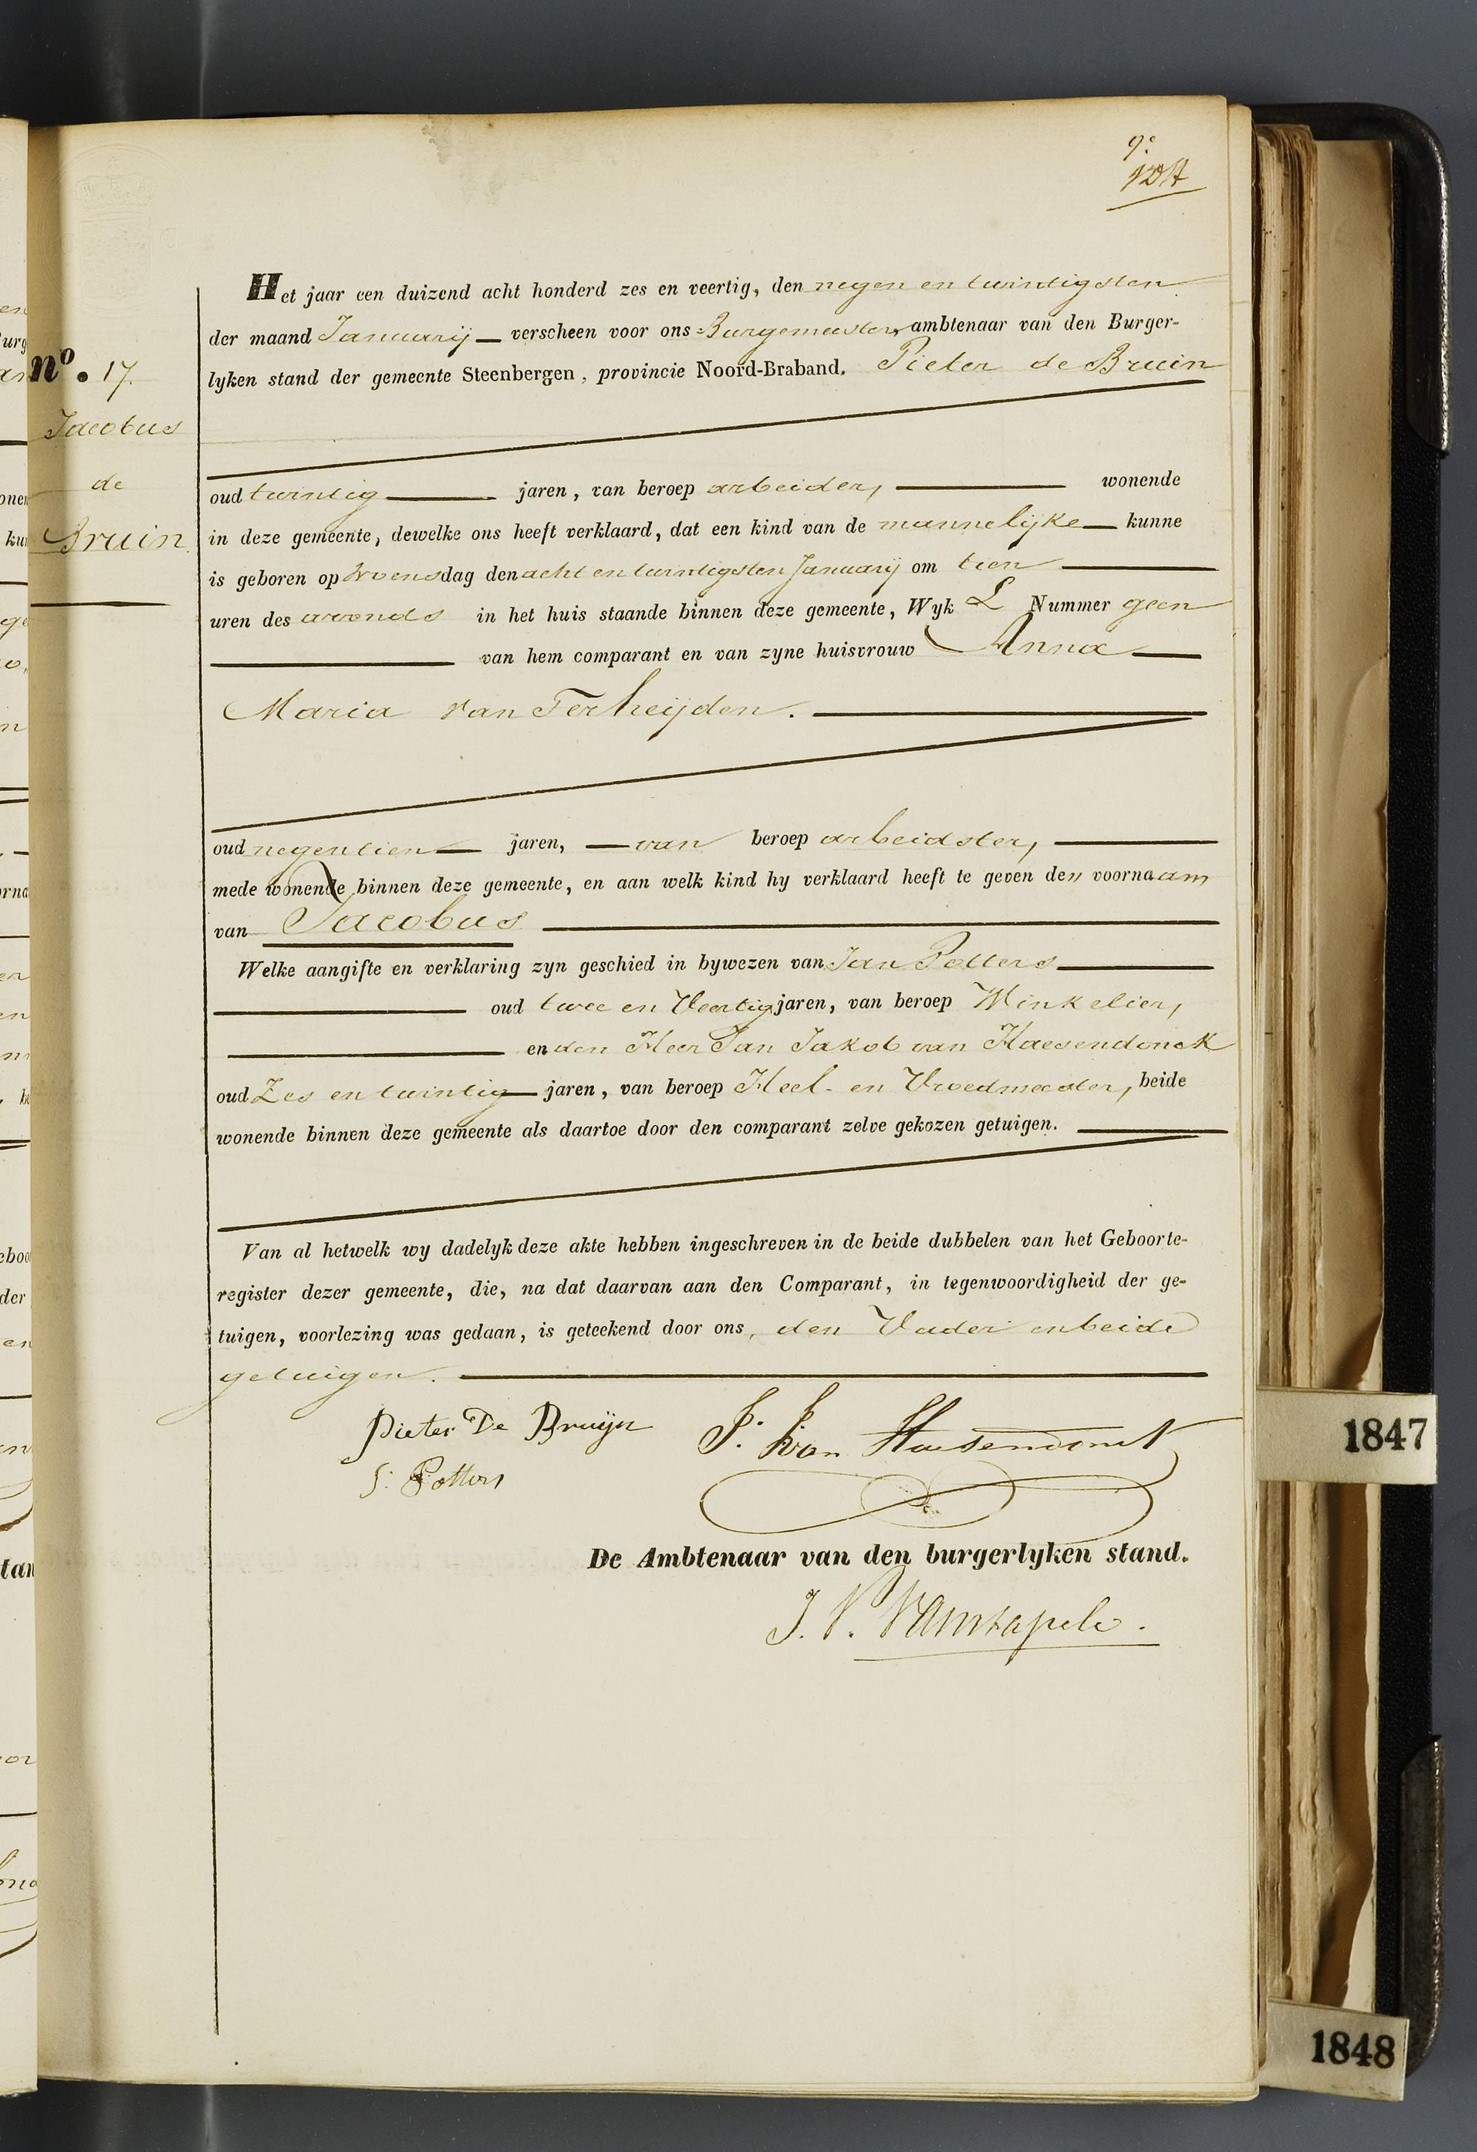 9e
Het jaar een duizend acht honderd zes en veertig, den negen en twintigsten
der maand Januarij verscheen voor ons Burgemeester, ambtenaar van den Burger-
lyken stand der gemeente Steenbergen, provincie Noord-Braband. Pieter de Bruin
no. 17.
Jacobus
de
Bruin
oud twintig jaren, van beroep arbeider, wonende
in deze gemeente, dewelke ons heeft verklaard, dat een kind van de mannelijke kunne
is geboren op Woensdag den acht en twintigsten Januarij om tien
uren des avonds in het huis staande binnen deze gemeente, Wyk L Nummer geen
van hem comparant en van zyne huisvrouw Anna
Maria van Terheijden.
oud negentien jaren, van beroep arbeidster,
mede wonende binnen deze gemeente, en aan welk kind hy verklaard heeft te geven den voornaam
van Jacobus
Welke aangifte en verklaring zyn geschied in bywezen van Jan Potters
oud twee en Veertig jaren, van beroep Winkelier,
en den Heer Jan Jakob van Haesendonck
oud Zes en twintig jaren, van beroep Heel- en Vroedmeester, beide
wonende binnen deze gemeente als daartoe door den comparant zelve gekozen getuigen.
Van al hetwelk wy dadelyk deze akte hebben ingeschreven in de beide dubbelen van het Geboorte-
register dezer gemeente, die, na dat daarvan aan den Comparant, in tegenwoordigheid der ge-
tuigen, voorlezing was gedaan, is geteekend door ons, den Vader en beide
getuigen.
Pieter De Bruijn
J. J. van Haesendonck
J. Potters
De Ambtenaar van den burgerlyken stand.
1847
1848